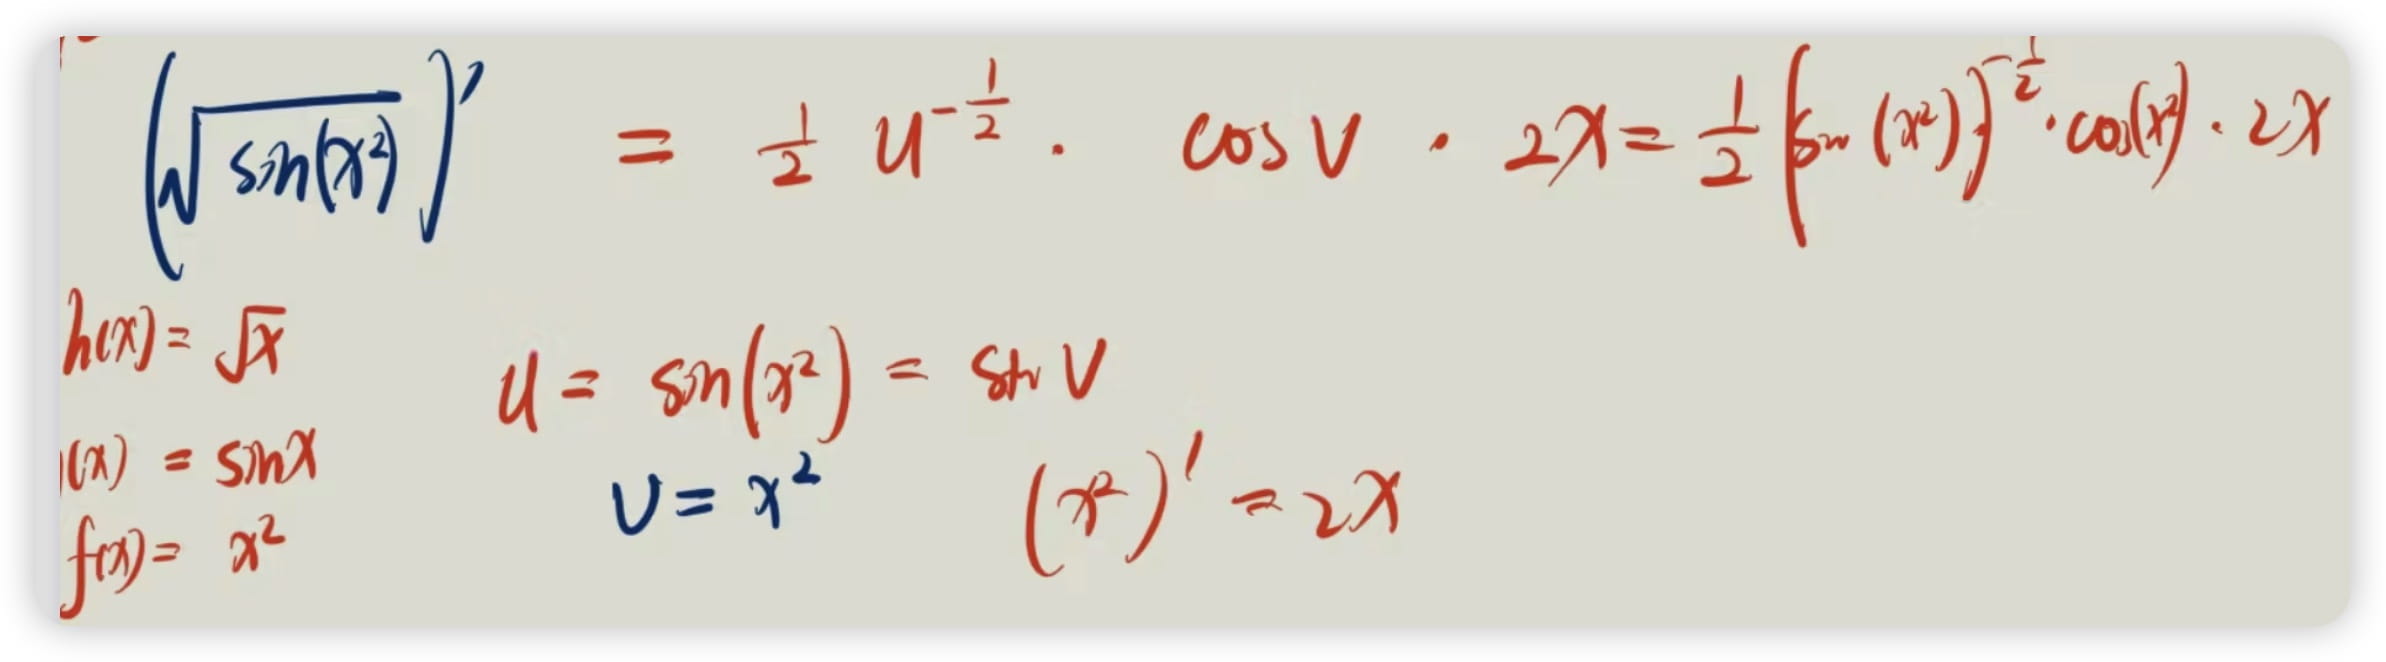 (√sin(x²))′ = 1/2 u^(-1/2) · cos v · 2x = 1/2 (sin(x²))^(-1/2) · cos(x²) · 2x
h(x) = √x
u = sin(x²) = sin v
(x) = sin x
v = x² (x²)′ = 2x
f(x) = x²